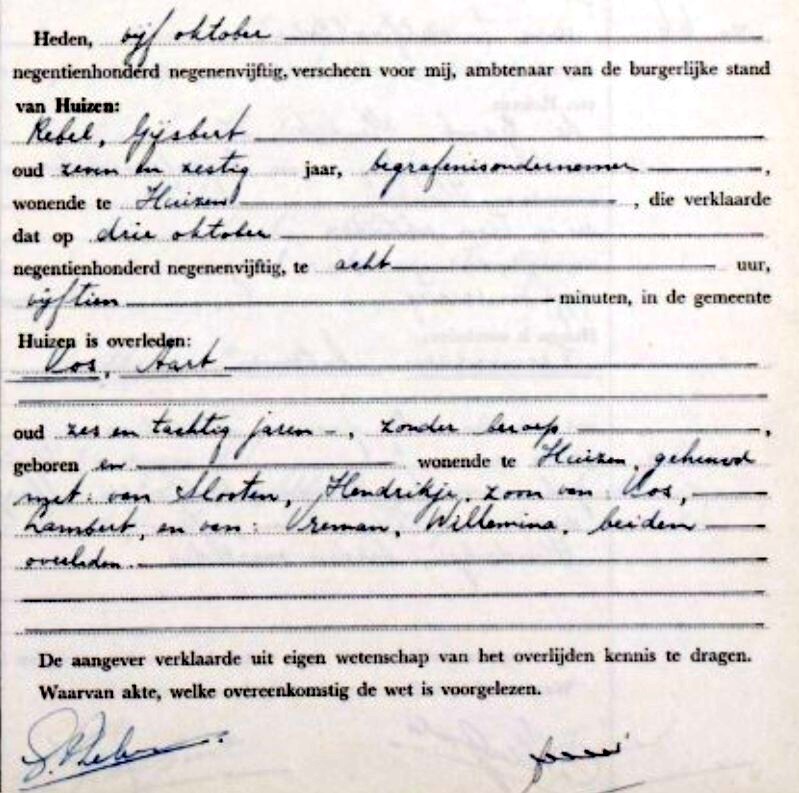 Heden, vijf oktober
negentienhonderd negenenvijftig, verscheen voor mij, ambtenaar van de burgerlijke stand
van Huizen:
Rebel, Gijsbert
oud zeven en zestig jaar, begrafenisondernemer,
wonende te Huizen, die verklaarde
dat op drie oktober
negentienhonderd negenenvijftig, te acht uur,
vijftien minuten, in de gemeente
Huizen is overleden:
Vos, Aart
oud zes en tachtig jaren -, zonder beroep,
geboren en wonende te Huizen, gehuwd
met: van Slooten, Hendrikje, zoon van: Vos,
Lambert, en van: Vreman, Willemina, beiden
overleden.
De aangever verklaarde uit eigen wetenschap van het overlijden kennis te dragen.
Waarvan akte, welke overeenkomstig de wet is voorgelezen.
G. Rebel